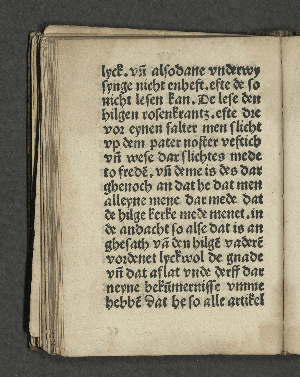 lyck. vñ alsodane vnderwy
synge nicht enheft. efte de so
nicht lesen kan. De lese den
hilgen rosenkrantz. efte dre
vor eynen salter men slicht
vp dem pater noster veftich
vñ wese dar slichtes mede
to fredē. vñ deme is des dar
ghenoch an dat he dat men
alleyne mene dar mede dat
de hilge kerke mede menet. in
de andacht so alse dat is an
ghesath vā den hilgē vaderē
vordenet lyckwol de gnade
vñ dat aflat vnde derff dar
neyne bekūmernisse vmme
hebbē dat he so alle artikel